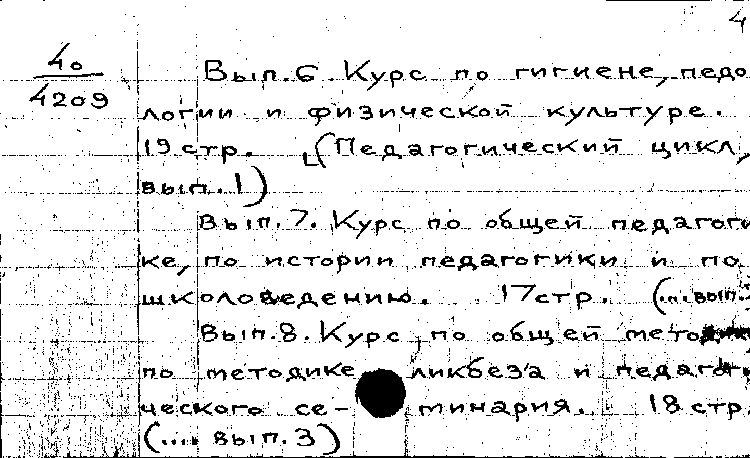 4
40
4209
Вып. 6. Курс по гигиене, педо
логии и физической культуре.
19 стр. (Педагогический цикл,
вып. 1)
Вып. 7. Курс по общей педагоги
ке, по истории педагогики и по
школоведению. 17 стр. (... вып.
Вып. 8. Курс по общей
по методике ликбеза и
ческого се- минария. 18 стр.
(.... вып. 3)